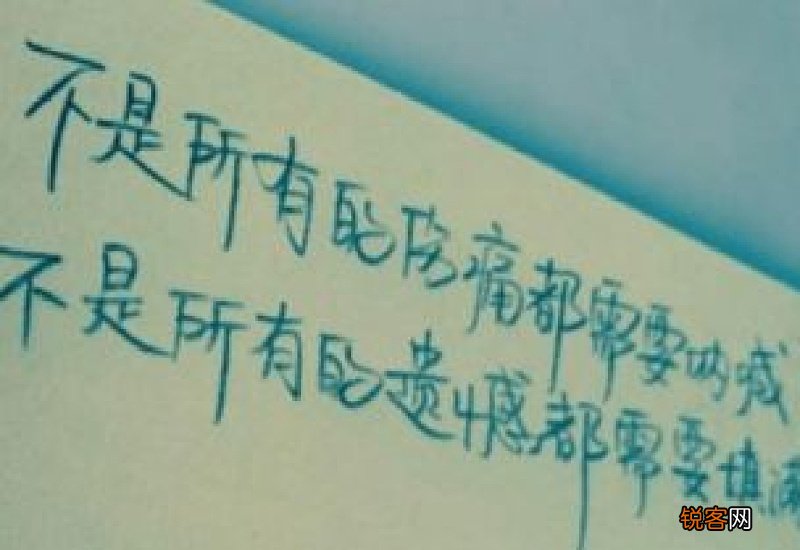 不是所有的伤痛都需要呐喊
不是所有的遗憾都需要填满
锐客网